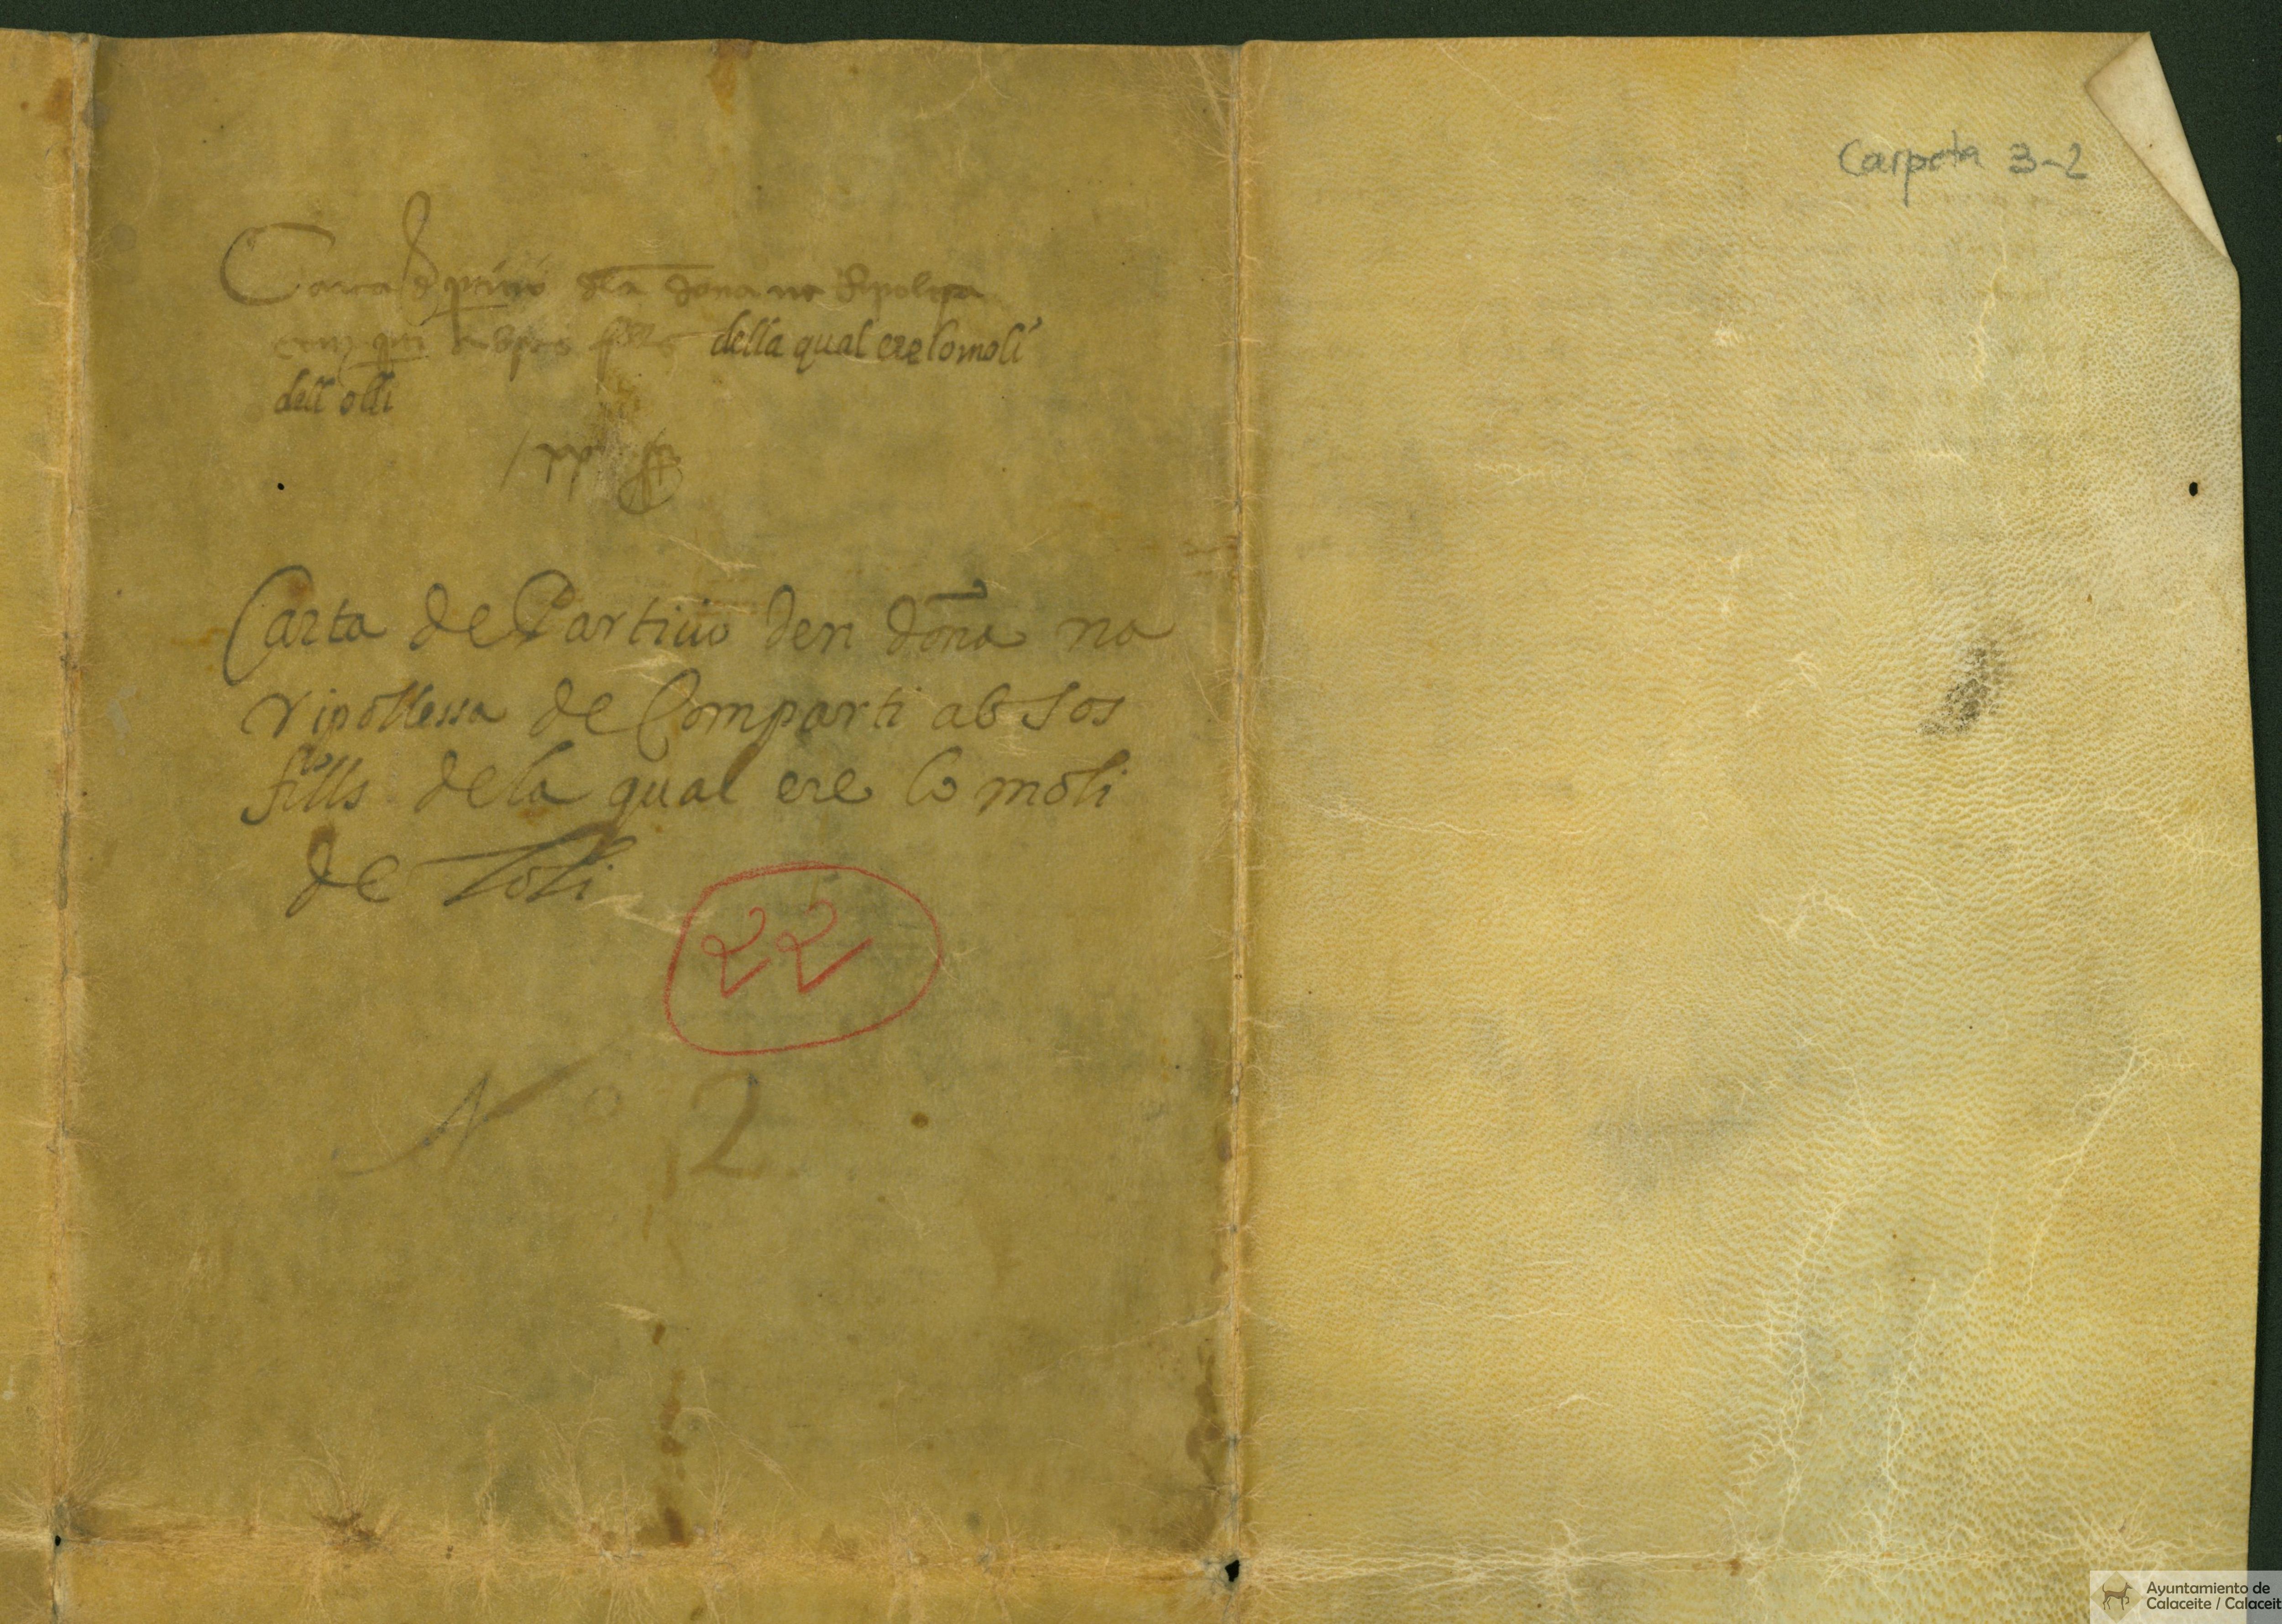 Carta de della dona na Ripolessa
fills della qual ere lo moli
dell olli
Carta de Particio den dona na
ripollessa de Comparti ab sos
fills de la qual ere lo moli
de Loli
22
Nº 2
Carpeta 3-2
Ayuntamiento de
Calaceite / Calaceit